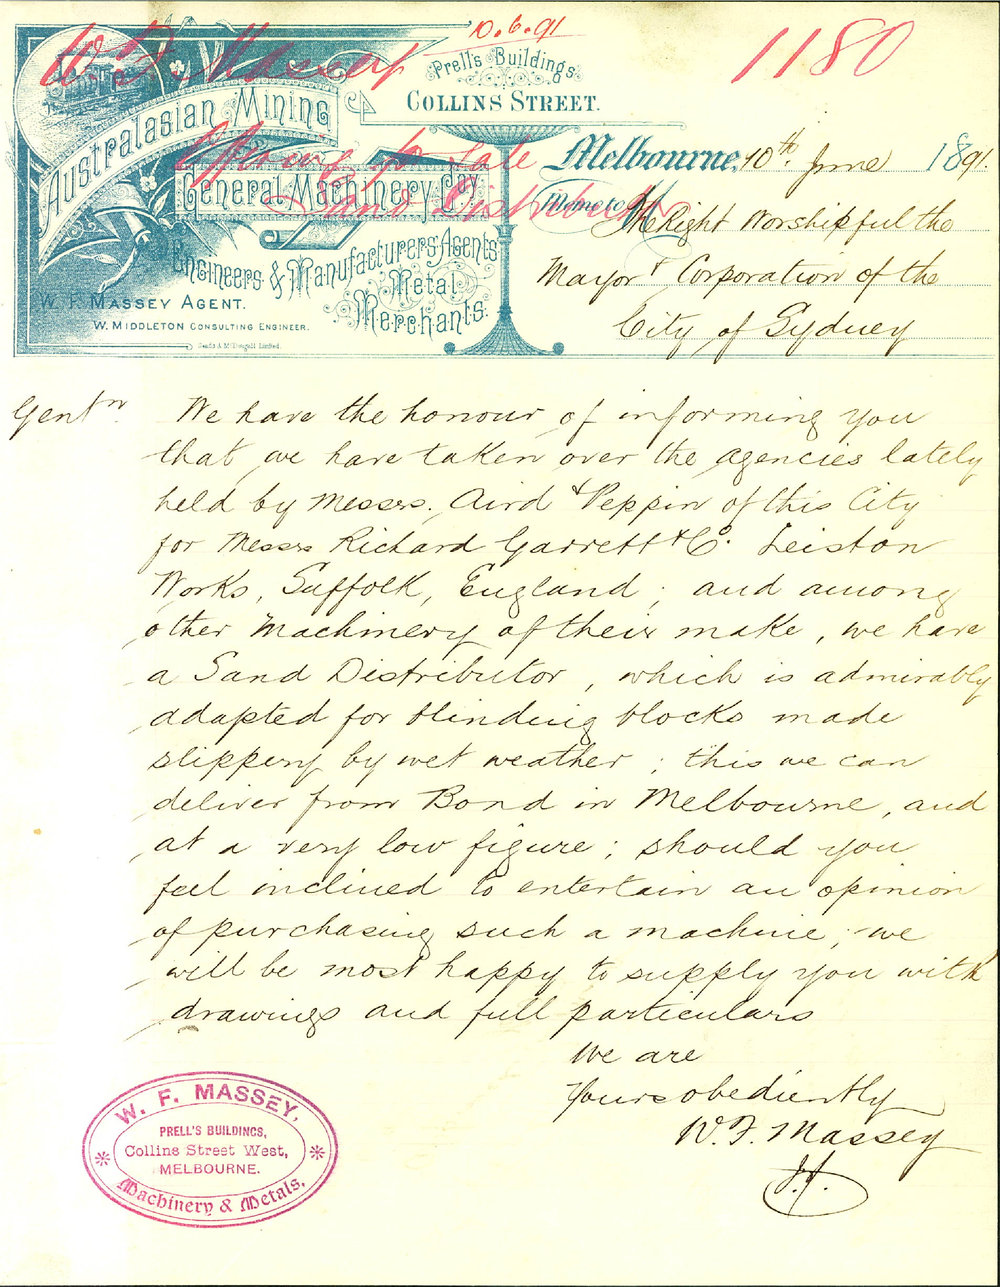 10.6.91
1180
W. F. Massey
Offering for Sale
Sand Distributor
Australasian Mining
&
General Machinery Coy.
Engineers & Manufacturers' Agents
Metal
Merchants.
W. F. MASSEY AGENT.
W. MIDDLETON CONSULTING ENGINEER.
Sands & McDougall Limited.
Prell's Buildings,
COLLINS STREET.
Melbourne, 10th June 1891.
Memo to
The Right Worshipful the
Mayor & Corporation of the
City of Sydney
Gentn
We have the honour of informing you
that we have taken over the agencies lately
held by Messrs. Aird & Peppin of this City
for Messrs Richard Garrett & Co. Leiston
Works, Suffolk, England; and among
other Machinery of their make, we have
a Sand Distributor, which is admirably
adapted for blinding blocks made
slippery by wet weather; this we can
deliver from Bond in Melbourne, and
at a very low figure; should you
feel inclined to entertain an opinion
of purchasing such a machine, we
will be most happy to supply you with
drawings and full particulars
We are
Yours obediently
W. F. Massey
W. F. MASSEY,
PRELL'S BUILDINGS,
Collins Street West,
MELBOURNE.
Machinery & Metals.